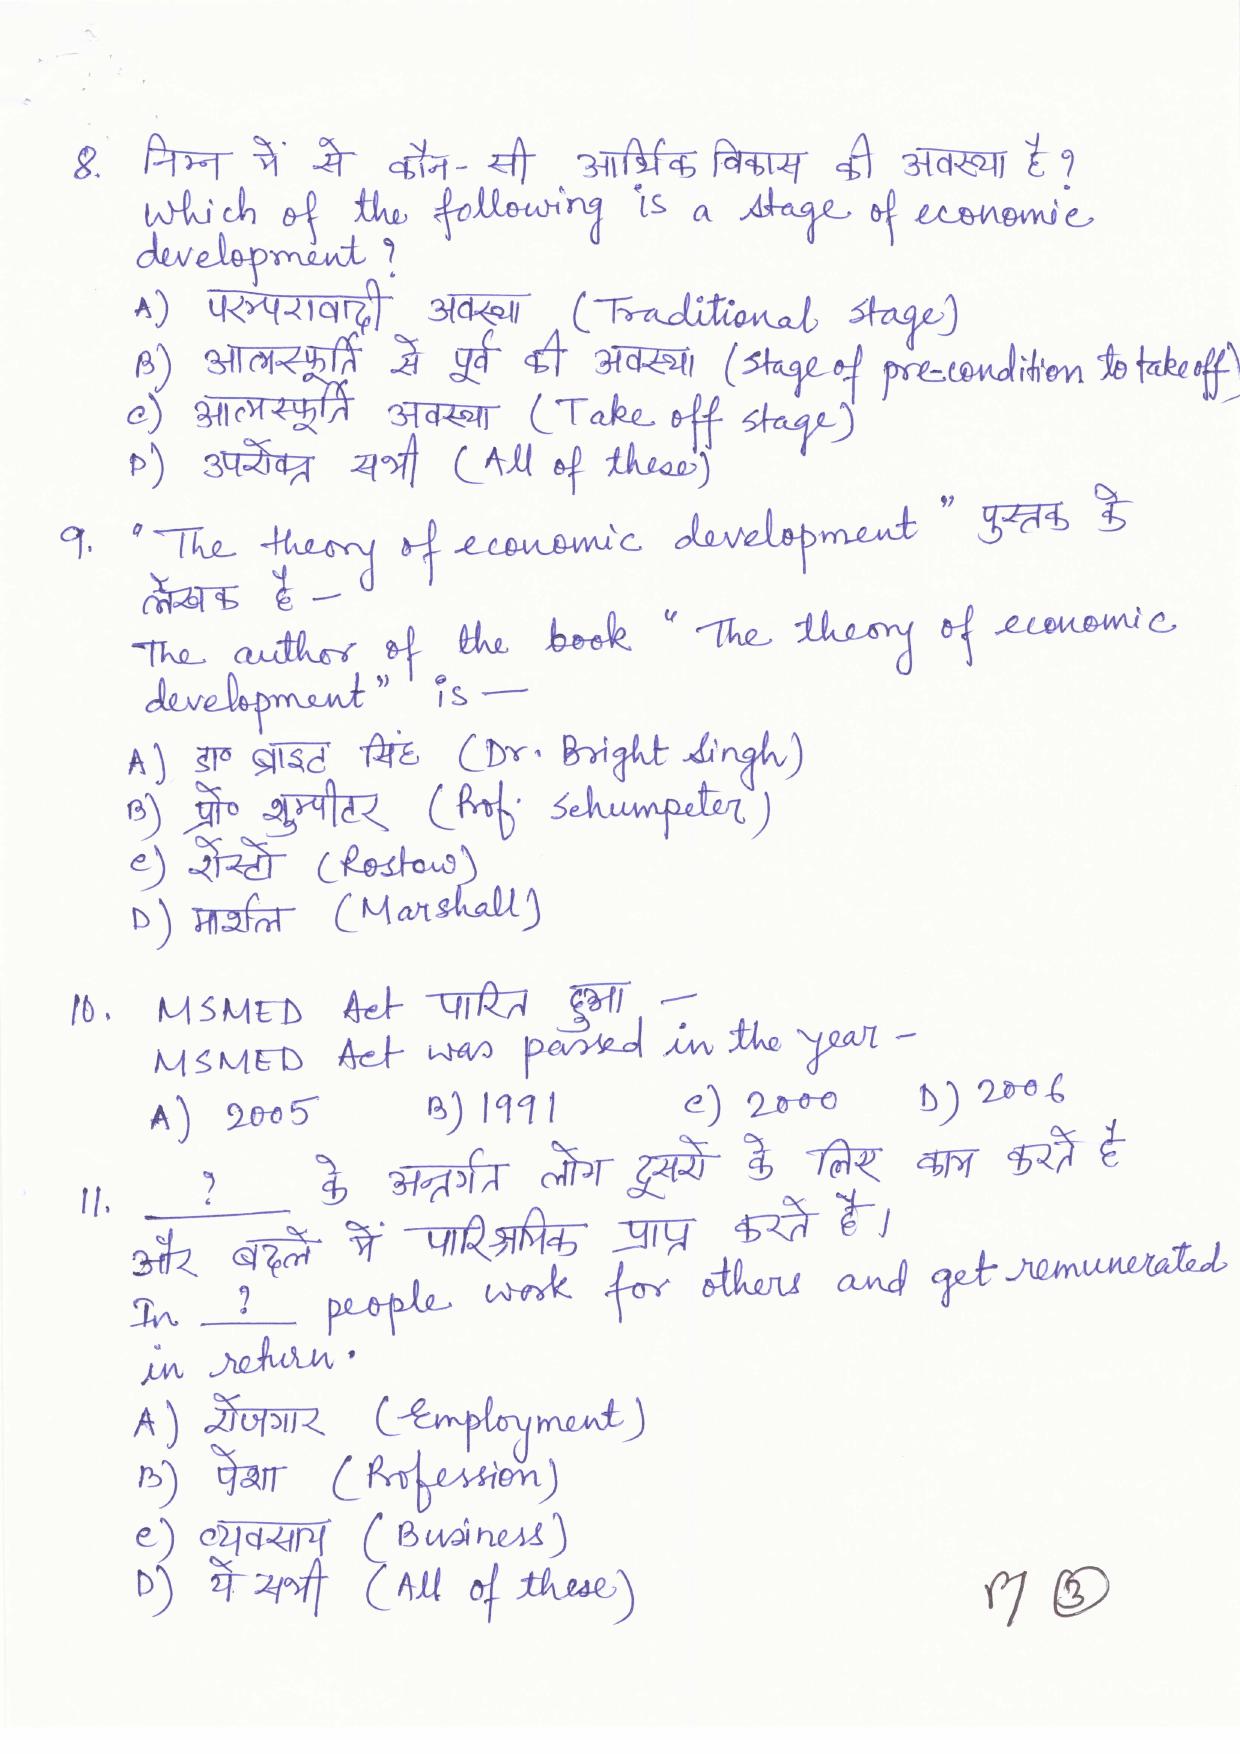 8. निम्न में से कौन-सी आर्थिक विकास की अवस्था है?
Which of the following is a stage of economic
development?
A) परम्परावादी अवस्था (Traditional stage)
B) आत्मस्फूर्ति से पूर्व की अवस्था (stage of pre-condition to take off)
C) आत्मस्फूर्ति अवस्था (Take off stage)
D) उपरोक्त सभी (All of these)
9. "The theory of economic development" पुस्तक के
लेखक है -
The author of the book "The theory of economic
development" is -
A) डा० ब्राइट सिंह (Dr. Bright Singh)
B) प्रो० शुम्पीटर (Prof. Schumpeter)
C) रोस्टो (Rostow)
D) मार्शल (Marshall)
10. MSMED Act पारित हुआ -
MSMED Act was passed in the year -
A) 2005 B) 1991 C) 2000 D) 2006
11. ? के अन्तर्गत लोग दूसरो के लिए काम करते है
और बदले में पारिश्रमिक प्राप्त करते है।
In ? people work for others and get remunerated
in return.
A) रोजगार (Employment)
B) पेशा (Profession)
C) व्यवसाय (Business)
D) ये सभी (All of these)
3